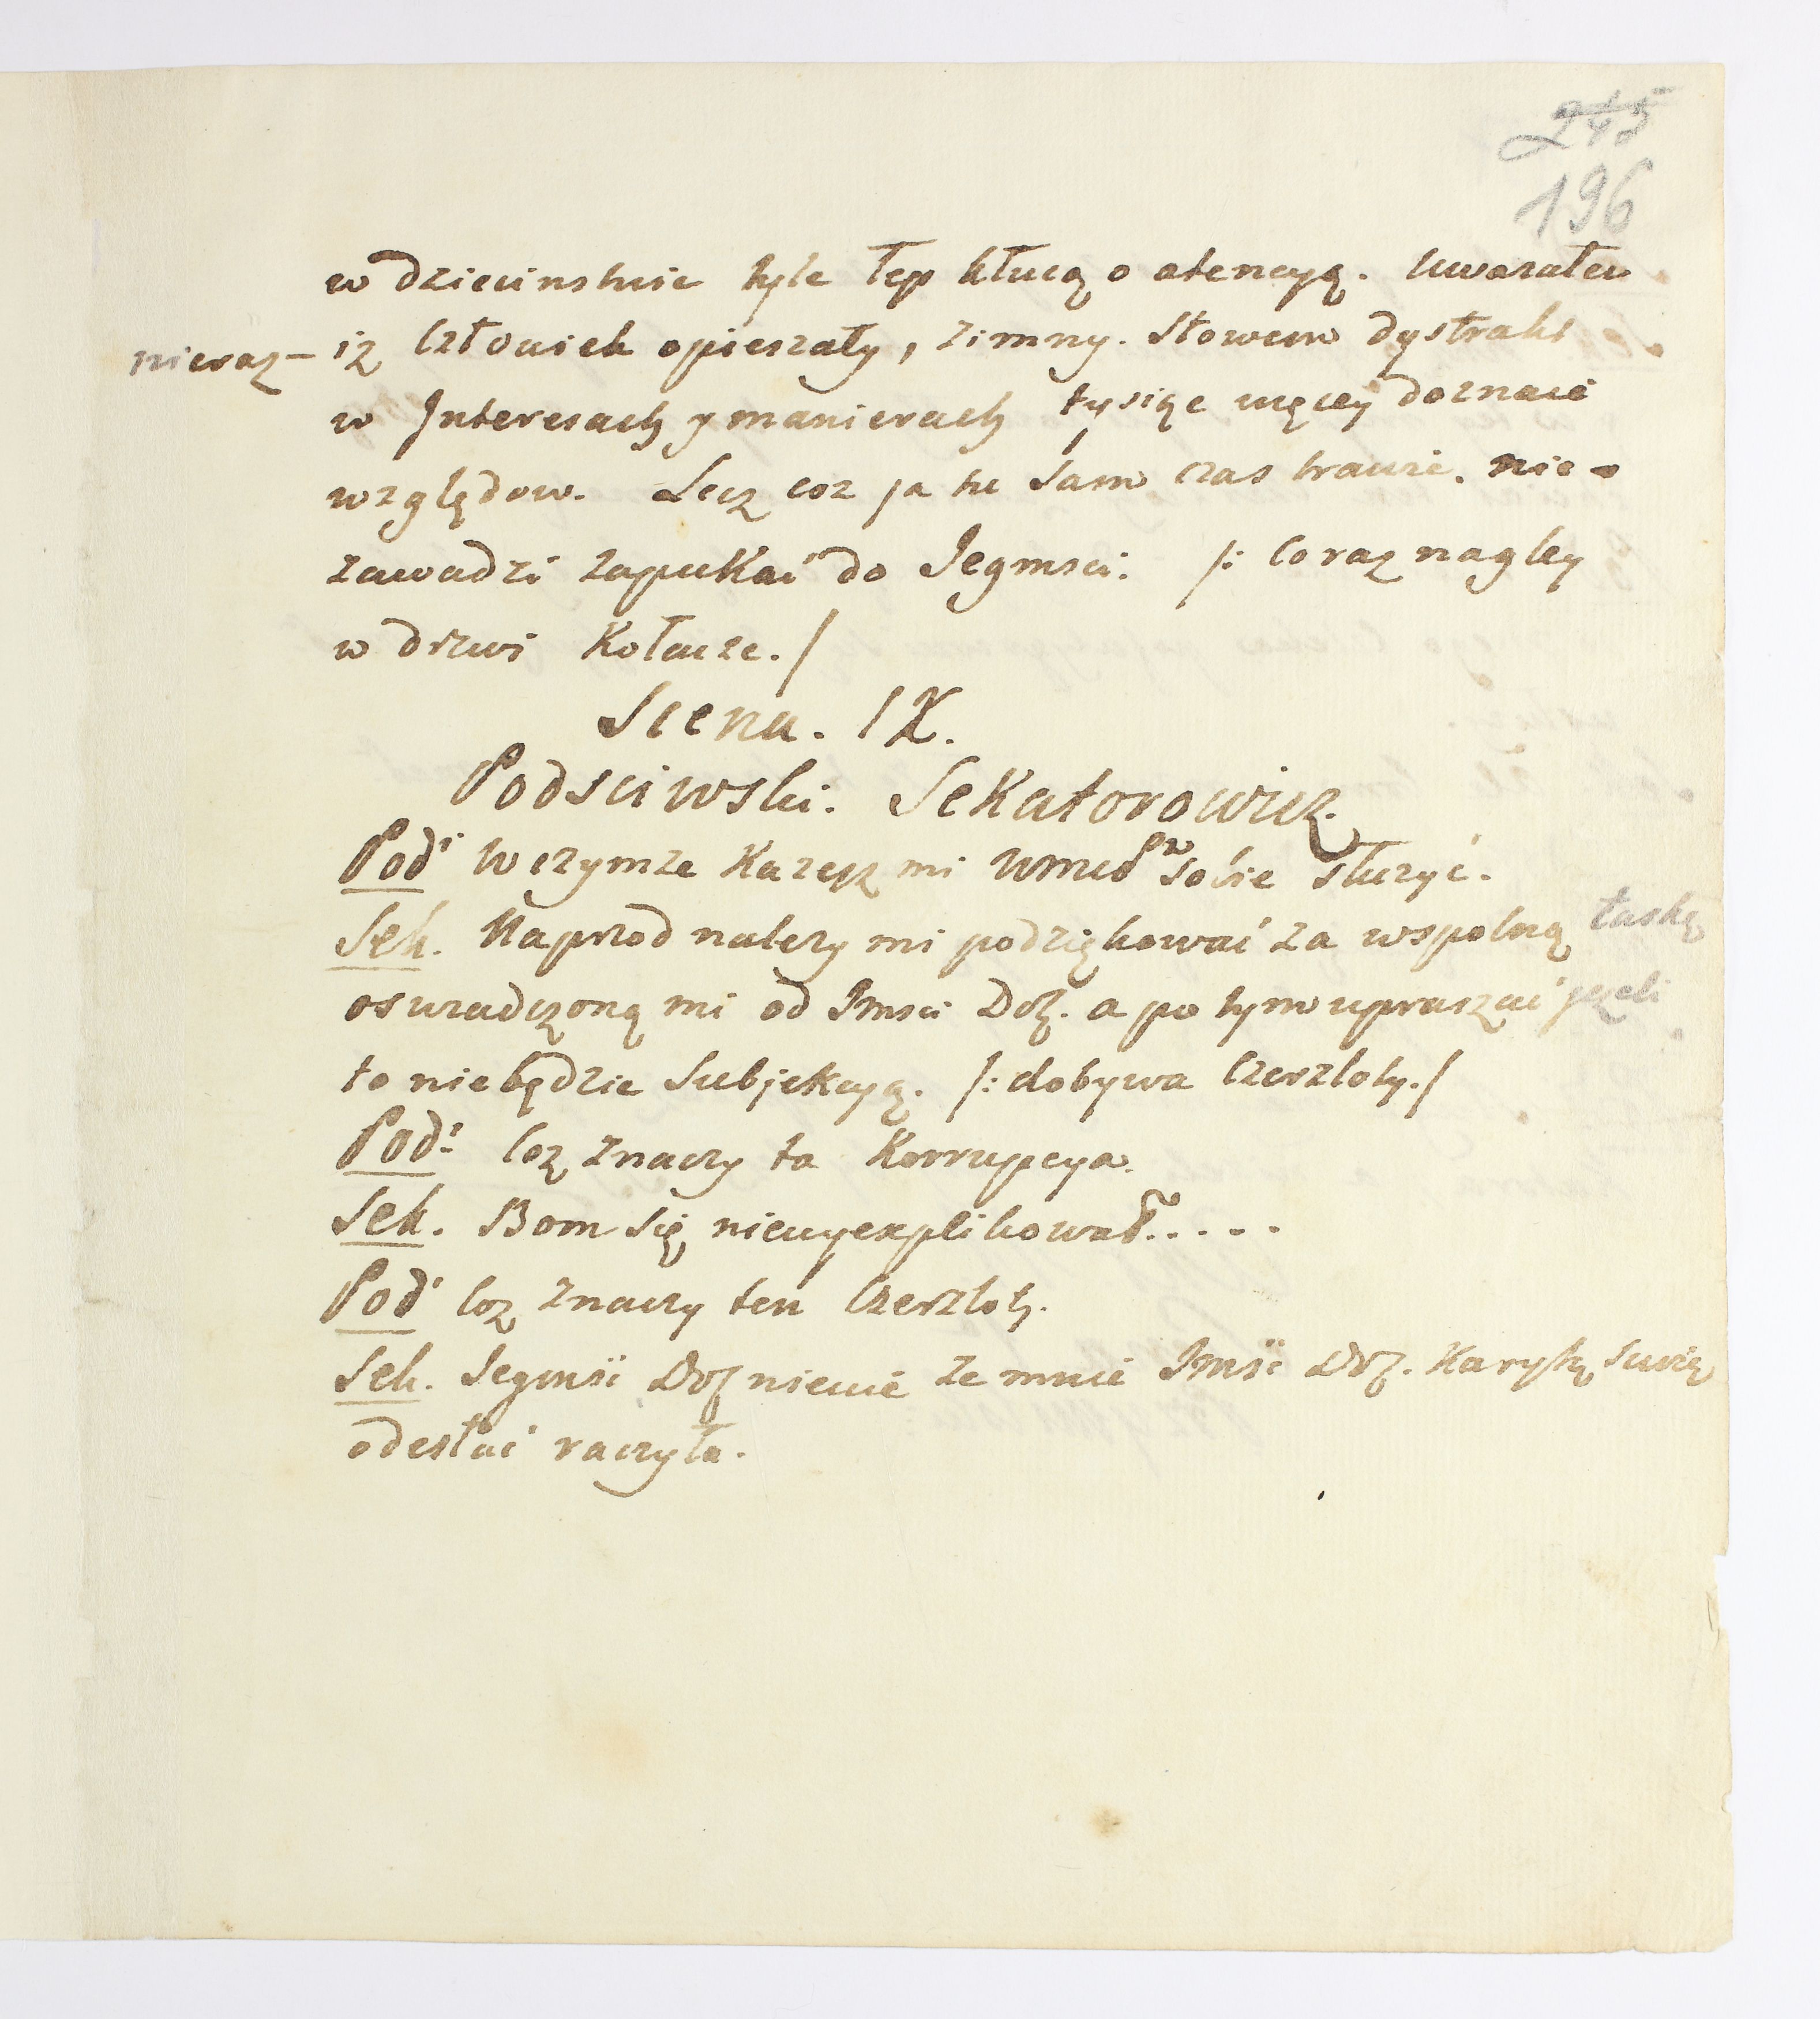 245
196
w dziecinstwie tyle łep kłucą o atencyą. Uwazałem
nieraz – iz Człowiek opieszały, zimny. Słowem dystrakt
w Interesach y manierach tysiąc więcey doznaie
względow. Lecz coz ja tu sam czas trawie. nie-
zawadzi zapukać do Jegmsci. /: Coraz nagley
w drzwi Kołacze./
Scena. IX.
Podsciwski. Sekatorowicz.
Pod: W czymze Karzesz mi Wmcd Pn sobie słuzyć.
Sek. Naprzod nalezy mi podziękować za wspolną łaskę
oswiadczoną mi od Imsci Dof. a po tym upraszać jezeli
to niebędzie Subjekcyą. /: dobywa Czerzloty./
Pod: Coz znaczy ta Korrupcya.
Sek. Bom się niewyexplikował.....
Pod: Coz znaczy ten Czerzloty.
Sek. Jegmsci Dof niewie ze mnie Imsci Dof. Karytę Swoię
odesłać raczyła.